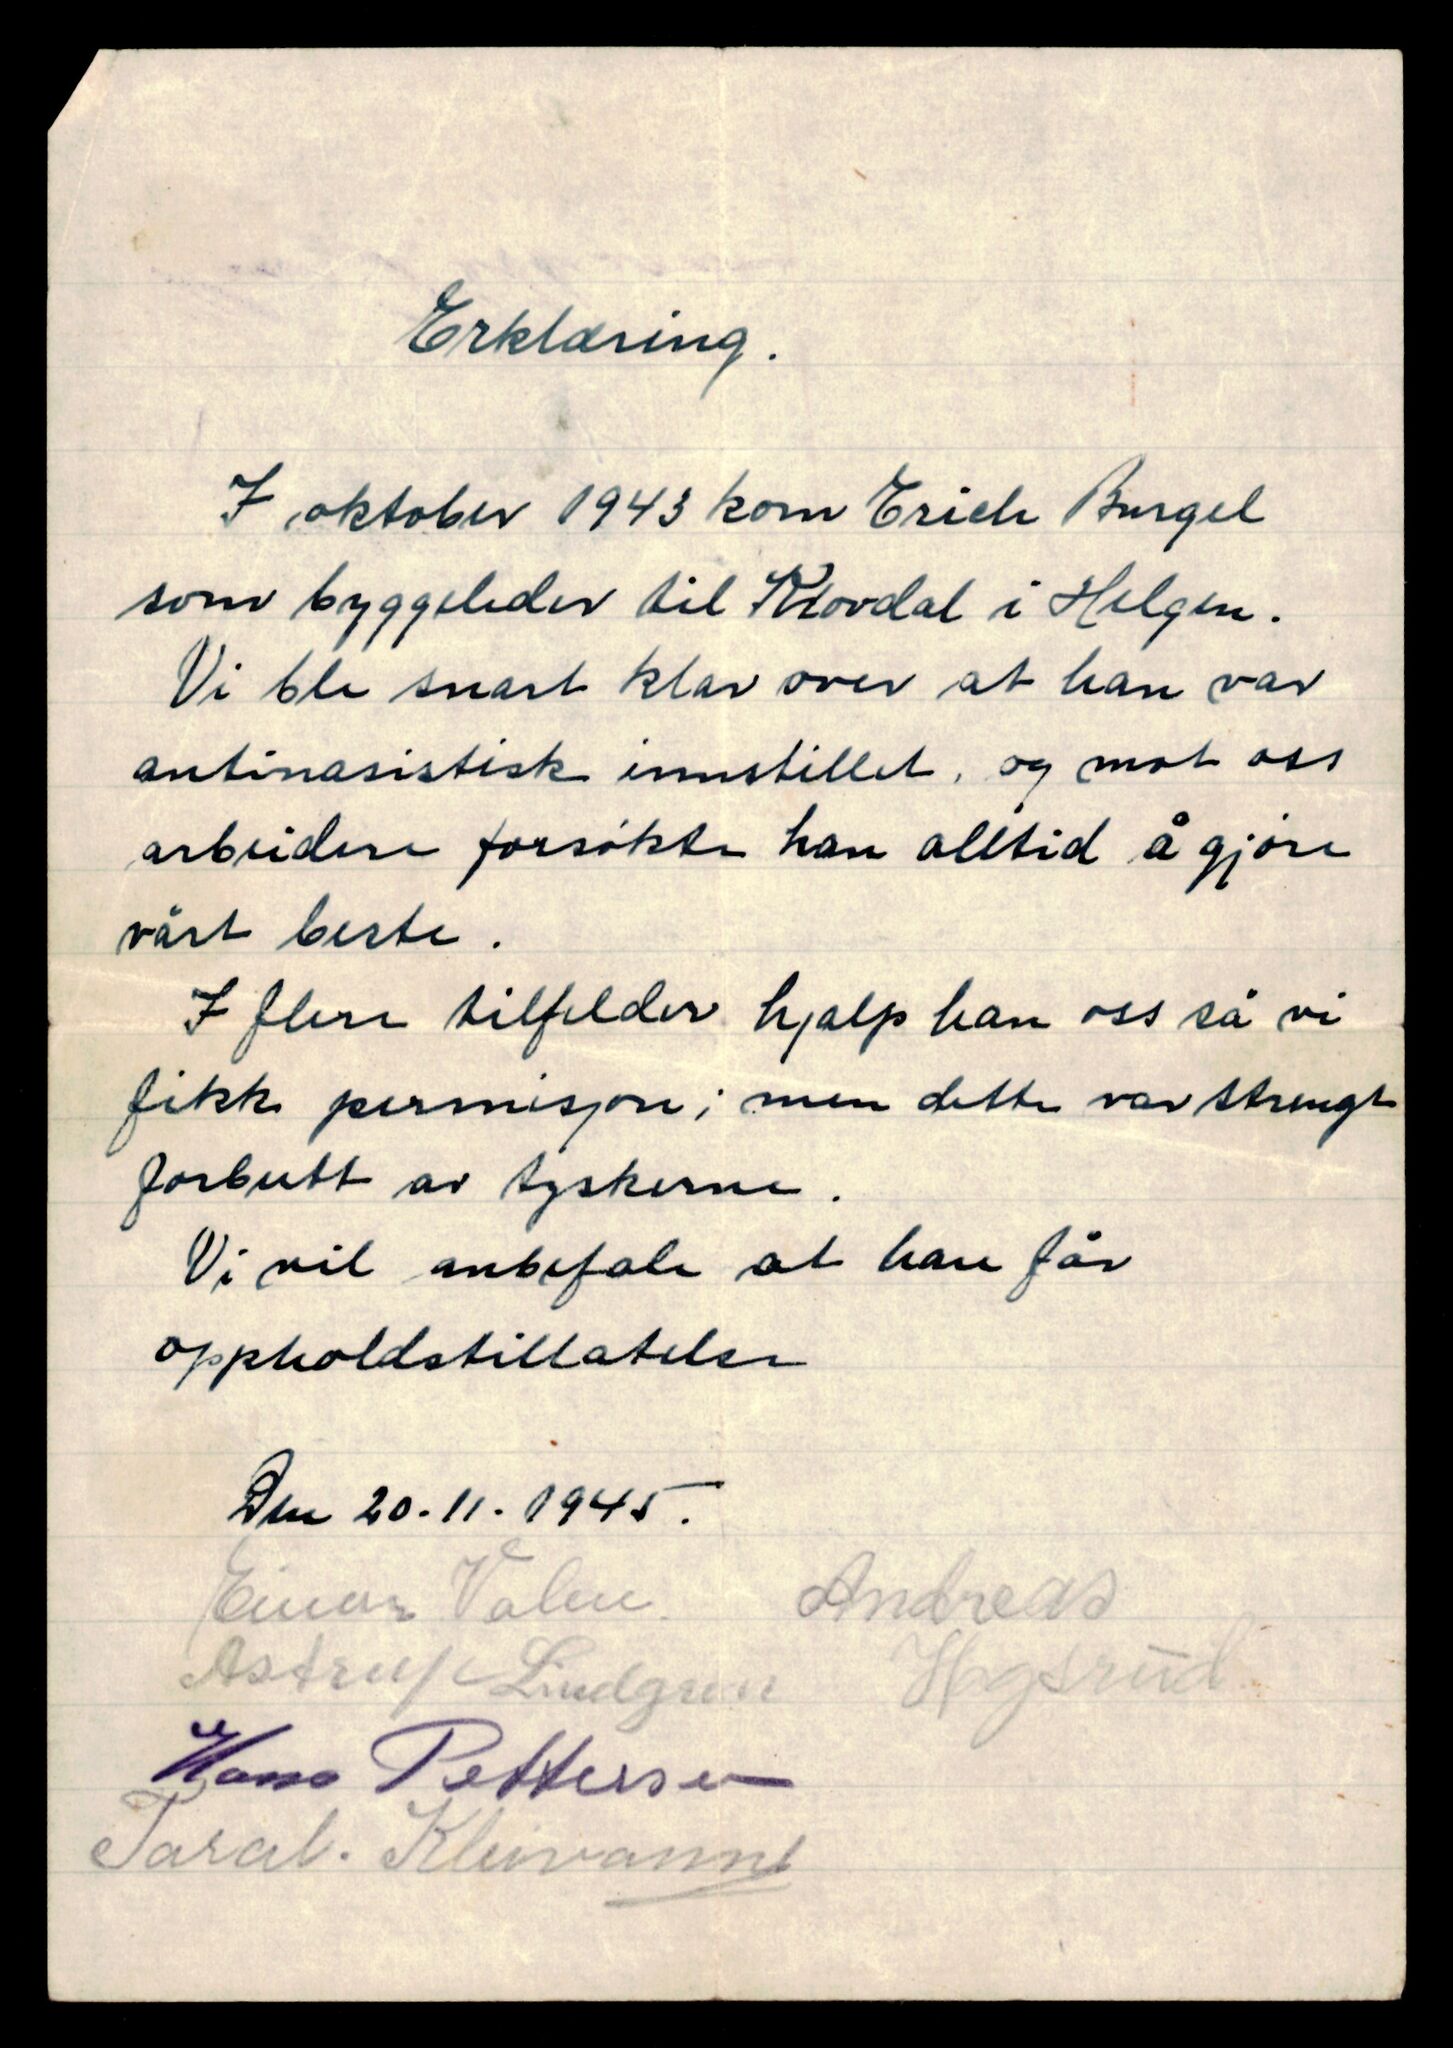 Erklæring.
I oktober 1943 kom Erich Burgel
som byggeleder til Klovdal i Helgen.
Vi ble snart klar over at han var
antinasistisk innstillet, og mot oss
arbeidere forsøkte han alltid å gjøre
vårt beste.
I flere tilfelder hjalp han oss så vi
fikk permisjon; men dette var strengt
forbutt av tyskerne.
Vi vil anbefale at han får
oppholdstillatelse
Den 20-11-1945.
Einar Valen
Andreas
Astrup Lindgren
Hogsrud
Hans Pettersen
Taral.